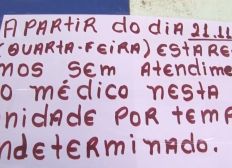 A PARTIR DO DIA 21.11
(QUARTA-FEIRA) ESTARE
MOS SEM AtENDIME
O MÉDICO NESTA
NIDADE POR tEMP
NDEtERMINADO.